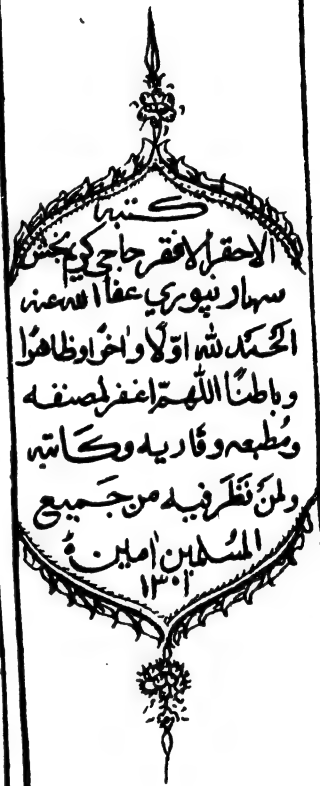 كتبه
الاحقر الافقر حاجي كريم بخش
سهارنپوري عفا الله عنه
الحمد لله اوّلًا واٰخرًا وظاهرًا
وباطنًا اللّٰهمّ اغفر لمصنفه
ومُطبعه وقاريه وكاتبه
ولمن نَظَرَ فيه من جَميع
المسُلمين اٰمين
١٣٠١